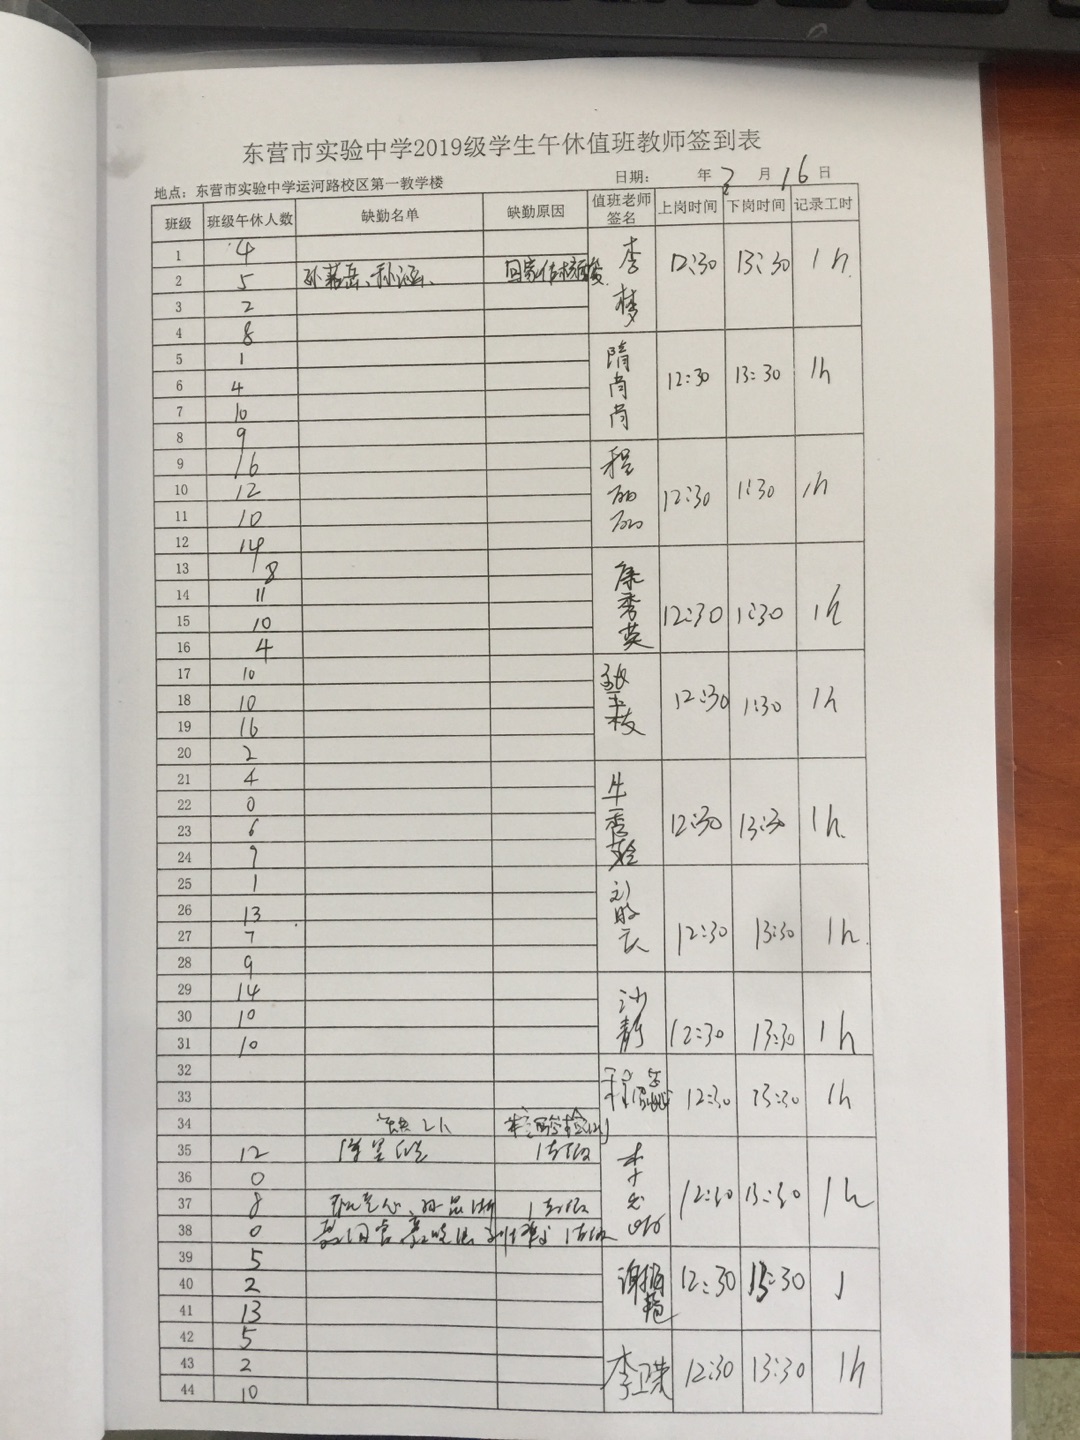 东营市实验中学2019级学生午休值班教师签到表
地点：东营市实验中学运河路校区第一教学楼 日期： 年 月16日
班级 班级午休人数 缺勤名单 缺勤原因 值班老师签名 上岗时间 下岗时间 记录工时
1 4 李梦 12:30 13:30 1h
2 5
3 2
4 8
5 1 隋肖肖 12:30 13:30 1h
6 4
7 10
8 9
9 16 程 12:30 1:30 1h
10 12
11 10
12 14
13 8 康秀英 12:30 1:30 1h
14 11
15 10
16 4
17 10 12:30 1:30 1h
18 10
19 16
20 2
21 4 牛秀 12:30 13:30 1h
22 0
23 6
24 9
25 1 刘 12:30 13:30 1h
26 13
27 7
28 9
29 14 沙静 12:30 13:30 1h
30 10
31 10
32 程 12:30 13:30 1h
33
34
35 12 李 12:30 13:30 1h
36 0
37 8
38 0
39 5 谢 12:30 13:30 1
40 2
41 13
42 5 李卫荣 12:30 13:30 1h
43 2
44 10